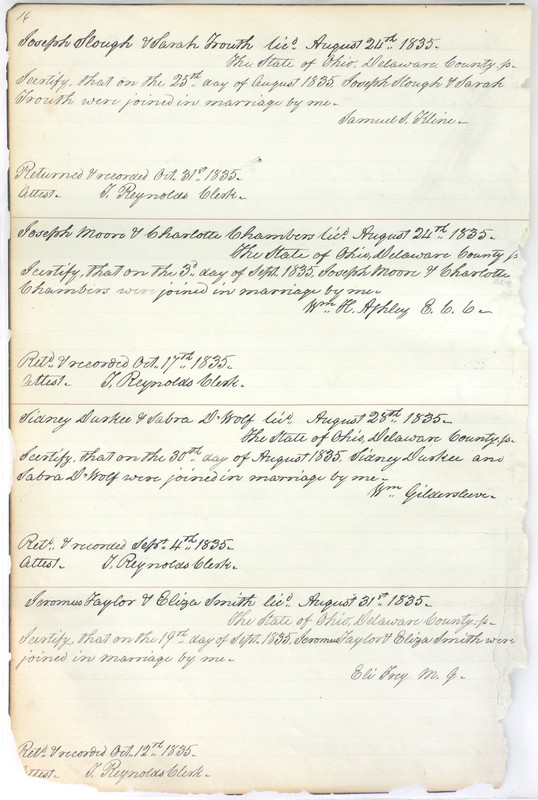 14
Joseph Slough & Sarah Trouth licd. August 24th 1835.
The State of Ohio, Delaware County, ss.
I certify, that on the 25th day of August 1835, Joseph Slough & Sarah
Trouth were joined in marriage by me.
Samuel S. Kline.
Returned & recorded Oct. 31st 1835.
Attest. T. Reynolds Clerk.
Joseph Moore & Charlotte Chambers licd. August 24th 1835.
The State of Ohio, Delaware County ss
I certify, that on the 3d. day of Sept. 1835, Joseph Moore & Charlotte
Chambers were joined in marriage by me.
Wm. H. Ashley E. C. C.
Retd. & recorded Oct. 17th 1835.
Attest. T. Reynolds Clerk.
Sidney Durkee & Sabra D. Wolf licd. August 28th 1835.
The State of Ohio, Delaware County, ss.
I certify, that on the 30th day of August 1835, Sidney Durkee and
Sabra D. Wolf were joined in marriage by me.
Wm. Gildersleeve.
Retd. & recorded Sept. 4th 1835.
Attest. T. Reynolds Clerk.
Jeromus Taylor & Eliza Smith licd. August 31st 1835.
The State of Ohio, Delaware County, ss.
I certify, that on the 19th day of Sept. 1835, Jeromus Taylor & Eliza Smith were
joined in marriage by me.
Eli Frey M. G.
Retd. & recorded Oct. 12th 1835.
Attest. T. Reynolds Clerk.